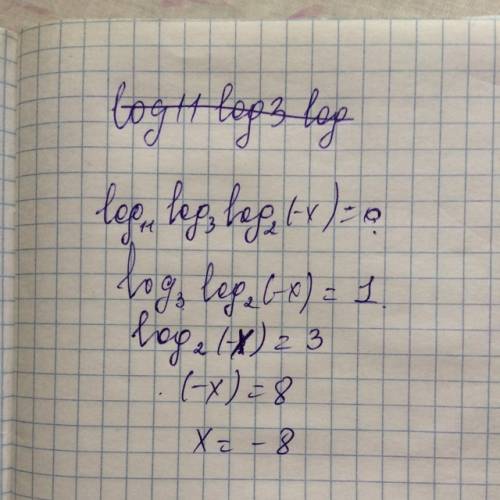 log 11 log 3 log
log₁₁ log₃ log₂ (-x) = 0
log₃ log₂ (-x) = 1.
log₂ (-x) = 3
(-x) = 8
x = -8